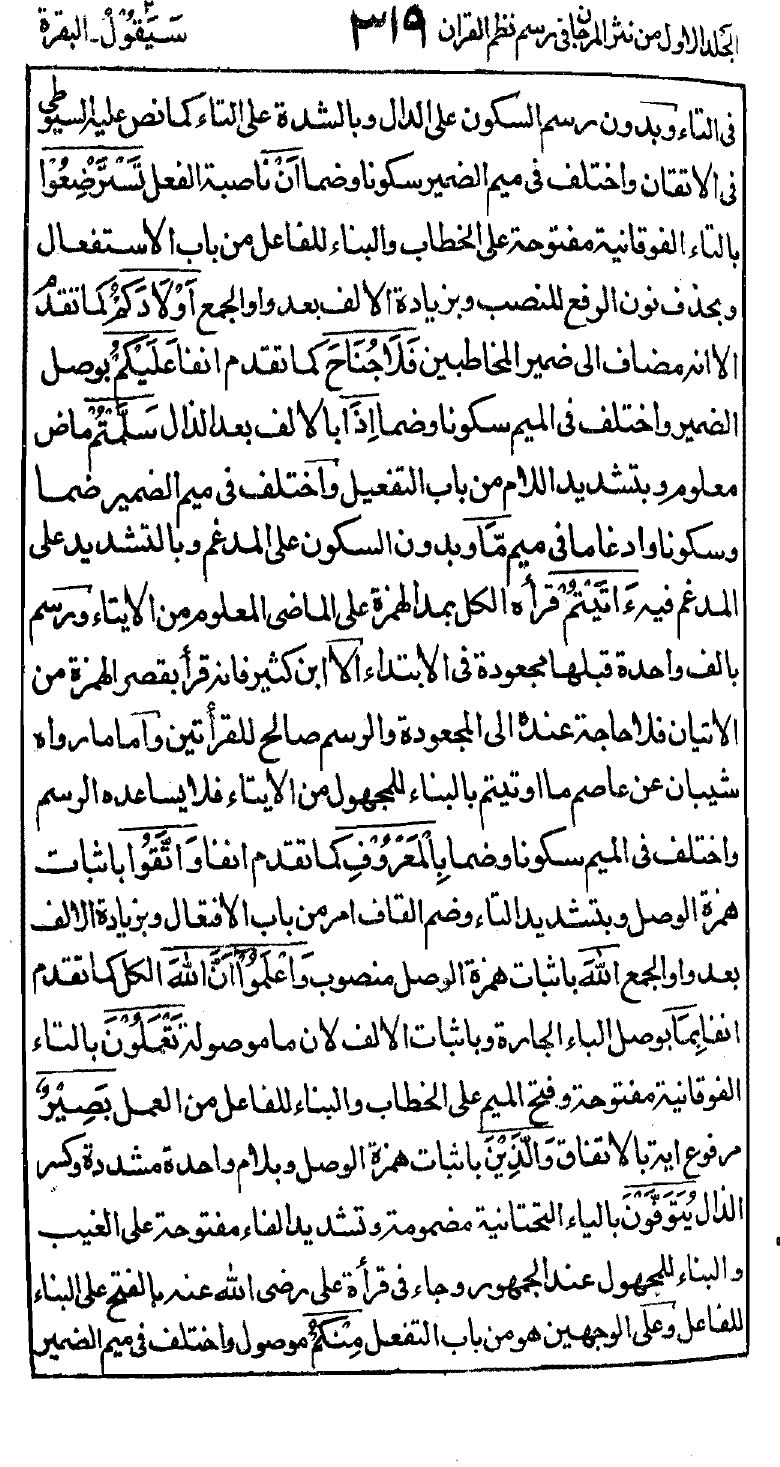 الجلد الاول من نثر المرجان فى رسم نظم القران ٣١٩ سَيَقُوْلُ ٢ـ البقرة
فى التاء وبدون رسم السكون على الدال وبالشدة على التاء كما نص عليه السيوطى
فى الاتقان واختلف فى ميم الضمير سكونا وضما اَنْ ناصبة الفعل تَسْتَرْضِعُوْا
بالتاء الفوقانية مفتوحة على الخطاب والبناء للفاعل من باب الاستفعال
وبحذف نون الرفع للنصب وبزيادة الالف بعد واو الجمع اَوْلَادَكُمْ كما تقدم
الا انه مضاف الى ضمير المخاطبين فَلَا جُنَاحَ كما تقدم انفا عَلَيْكُمْ بوصل
الضمير واختلف فى الميم سكونا وضما اِذَا بالالف بعد الذال سَلَّمْتُمْ ماض
معلوم وبتشديد اللام من باب التفعيل واختلف فى ميم الضمير ضما
وسكونا وادغاما فى ميم مَّا وبدون السكون على المدغم وبالتشديد على
المدغم فيه ءَاتَيْتُمْ قرأه الكل بمد الهمزة على الماضى المعلوم من الايتاء ورسم
بالف واحدة قبلها مجعودة فى الابتداء الا ابن كثير فانه قرأ بقصر الهمزة من
الاتيان فلا حاجة عنده الى المجعودة والرسم صالح للقرأتين واما ما رواه
شيبان عن عاصم ما اوتيتم بالبناء للمجهول من الايتاء فلا يساعده الرسم
واختلف فى الميم سكونا وضما بِالْمَعْرُوْفِ كما تقدم انفا وَاتَّقُوا باثبات
همزة الوصل وبتشديد التاء وضم القاف امر من باب الافتعال وبزيادة الالف
بعد واو الجمع اللهَ باثبات همزة الوصل منصوب وَاعْلَمُوْا اَنَّ اللهَ الكل كما تقدم
انفا بِمَا بوصل الباء الجارة وباثبات الالف لان ما موصولة تَعْمَلُوْنَ بالتاء
الفوقانية مفتوحة وفتح الميم على الخطاب والبناء للفاعل من العمل بَصِيْرٌ
مرفوع اية بالاتفاق وَالَّذِيْنَ باثبات همزة الوصل وبلام واحدة مشددة وكسر
الذال يُتَوَفَّوْنَ بالياء التحتانية مضمومة وتشديد الفاء مفتوحة على الغيب
والبناء للمجهول عند الجمهور وجاء فى قرأة على رضى الله عنه بالفتح على البناء
للفاعل وعلى الوجهين هو من باب التفعل مِنْكُمْ موصول واختلف فى ميم الضمير